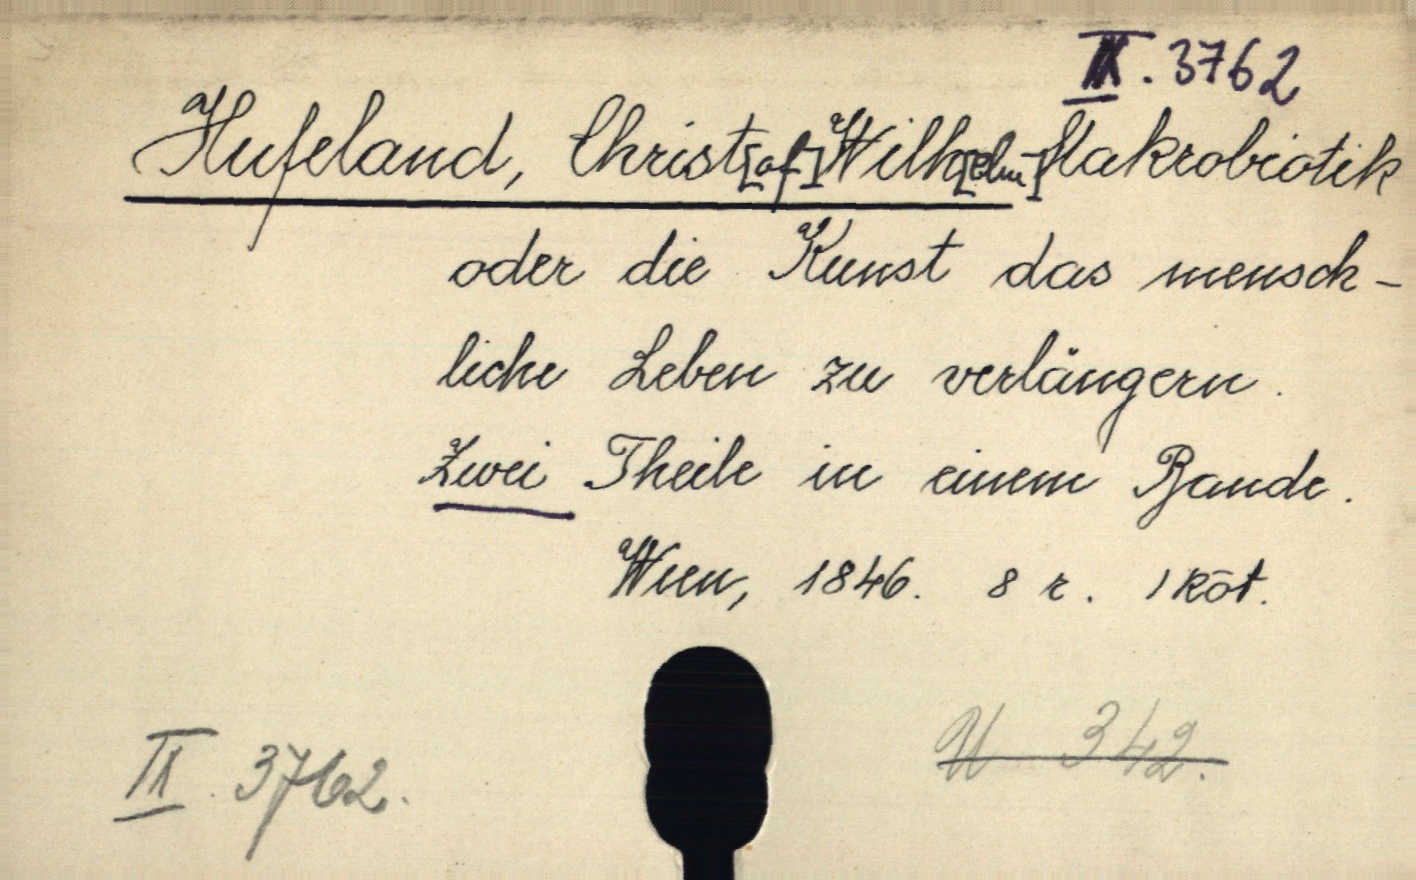 II. 3762
Hufeland, Christ[of] Wilh[elm] Makrobiotik
oder die Kunst das mensch-
liche Leben zu verlängern.
Zwei Theile in einem Bande.
Wien, 1846. 8 r. 1 köt.
U 342.
II. 3762.